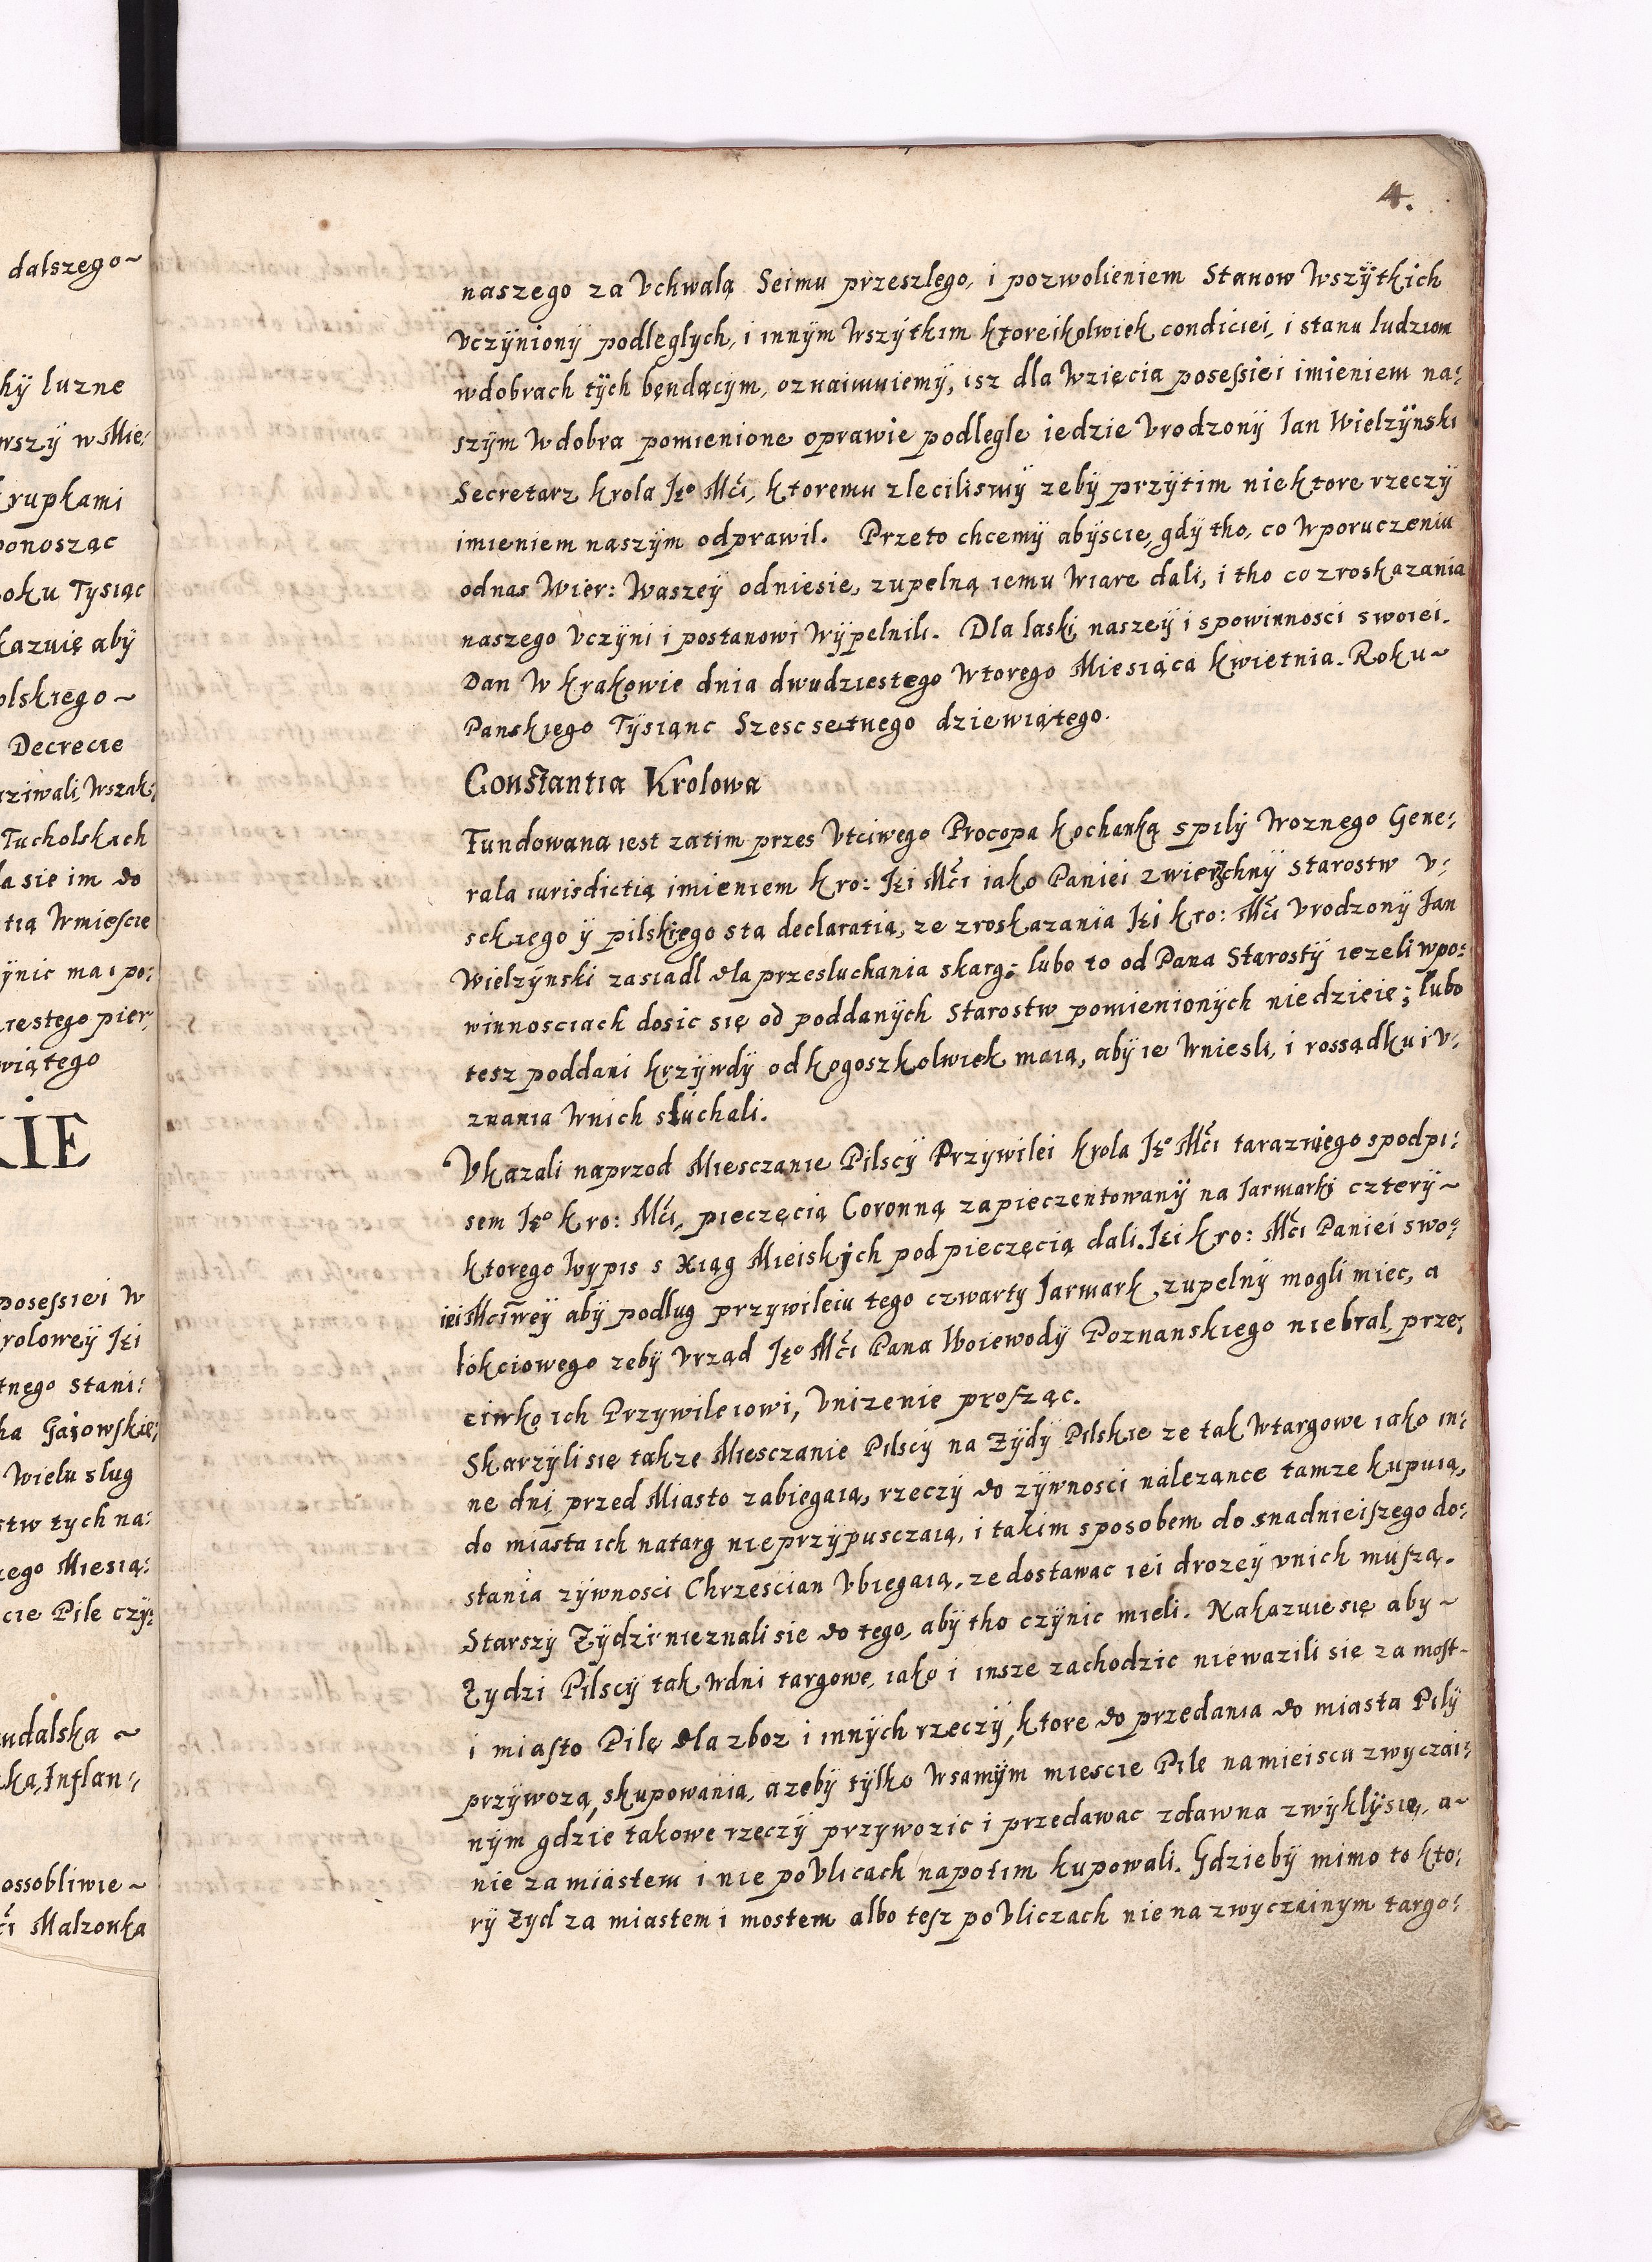 dalszego~
ky luzne
wszÿ w Mie:
krupkami
ponosząc
oku Tysiąc
kazuię aby
olskiego~
Decrecie
aziwali, wszak:
Tucholskich
la sie im do
tią W mieście
ÿnic ma i po:
iestego pier:
wiątego
KIE
posessiei W
krolowey Jᷤei
tnego Stani:
ka Gaiowskie:
Wielu slug
stw tych na:
zego Miesią:
cie Pile czÿ:
ndalska ~
ka, Inflan:
ossobliwie~
Mći Malzonka
4.
naszego za Vchwalą Seimu przeszlego, i pozwolieniem Stanow Wszÿtkich
Vczÿnionÿ podleglych, i innÿm Wszÿtkim ktoreikolwiek condiciei, i stanu ludziom
wdobrach tÿch bęndącÿm, oznaimuiemÿ, isz dla Wzięcia posessiei imieniem na:
szÿm Wdobra pomienione oprawie podlegle iedzie Vrodzonÿ Jan Wielzÿnski
Secretarz Krola Jeº Mći, ktoremu zlecilismÿ zebÿ przÿtim niektore rzeczÿ
imieniem naszÿm odprawil. Przeto chcemÿ abÿscie, gdÿ tho, co Wporuczeniu
odnas Wier: Waszeÿ odniesie, zupelną iemu Wiare dali, i tho cozroskazania
naszego Vczÿni i postanowi Wÿpelnili. Dla laski naszeÿ i spowinnosci swoiei.
Dan W Krakowie dnia dwudziestego Wtorego Miesiąca Kwietnia. Roku~
Panskiego Tÿsiąnc Szescsetnego dziewiątego.
Constantia Krolowa
Fundowana iest zatim przes Vtciwego Procopa Kochanką spilÿ Woznego Gene:
rala iurisdictią imieniem Kro: Jei Mći iako Paniei zwierzchnÿ Starostw V:
sckiego ÿ pilskiego sta declaratią, ze zroskazania Jei Kro: Mći Vrodzonÿ Jan
Wielzÿnski zasiadl dla przesluchania skarg: lubo to od Pana Starostÿ iezeli wpo:
winnosciach dosic się od poddanÿch Starostw pomienionÿch niedzieie; lubo
tesz poddani krzÿwdÿ odkogoszkolwiek maią, abÿ ie Wniesli, i rossądku i V:
znania Wnich sluchali.
Vkazali naprzod Miesczanie Pilscÿ Przÿwilei Krola Jeº Mći tarazniego spodpi:
sem Jeº Kro: Mći, pieczęcią Coronną zapieczentowanÿ na Jarmarki czterÿ~
ktorego Wypis s Xiąg Mieiskich pod pieczęcią dali. Jei Kro: Mći Paniei swo:
iei Mciweÿ abÿ podlug przywileiu tego czwarty Jarmark zupelnÿ mogli miec, a
łokciowego zebÿ Vrząd Jeº Mći Pana Woiewodÿ Poznanskiego niebral, prze:
ciwko ich Przywileiowi, Vnizenie prosząc.
Skarzÿli się takze Miesczanie Pilscÿ na Zÿdÿ Pilskie ze tak Wtargowe iako in:
ne dni przed Miasto zabiegaią, rzeczÿ do zÿwnosci nalezance tamze kupuią,
do miasta ich natarg nieprzÿpusczaią, i takim sposobem do snadnieiszego do:
stania zÿwnosci Chrzescian Vbiegaią, ze dostawac iei drozeÿ vnich muszą.
Starszÿ Zÿdzi nieznali sie do tego, abÿ tho czÿnic mieli. Nakazuie się aby~
Zydzi Pilscÿ tak Wdni targowe, iako i insze zachodzic niewazili sie za most~
i miasto Pilę dla zboz i innÿch rzeczÿ, ktore do przedania do miasta Pilÿ
przÿwozą, skupowania, azebÿ tÿlko Wsamÿm miescie Pile namieiscu zwyczai:
nÿm gdzie takowe rzeczÿ przywozic i przedawac zdawna zwÿklÿ się, a~
nie za miastem i nie poVlicach napotim kupowali. Gdziebÿ mimo to kto:
rÿ Zÿd za miastem i mostem albo tesz poVliczach nie na zwyczainym targo: